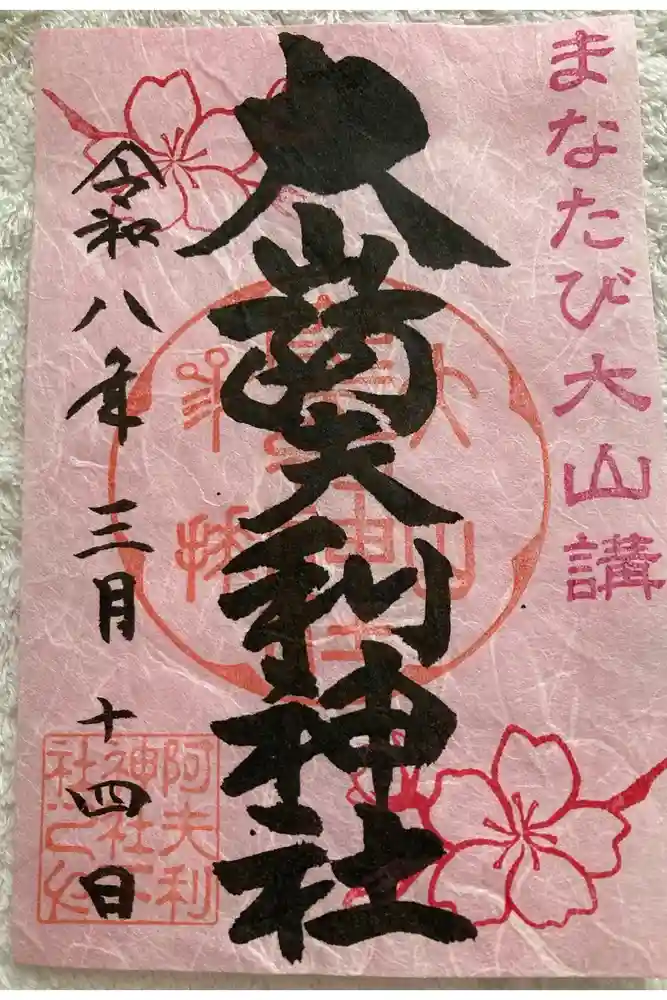 まなたび大山講
大山阿夫利神社
令和八年三月十四日
阿夫利
神社下
社之印